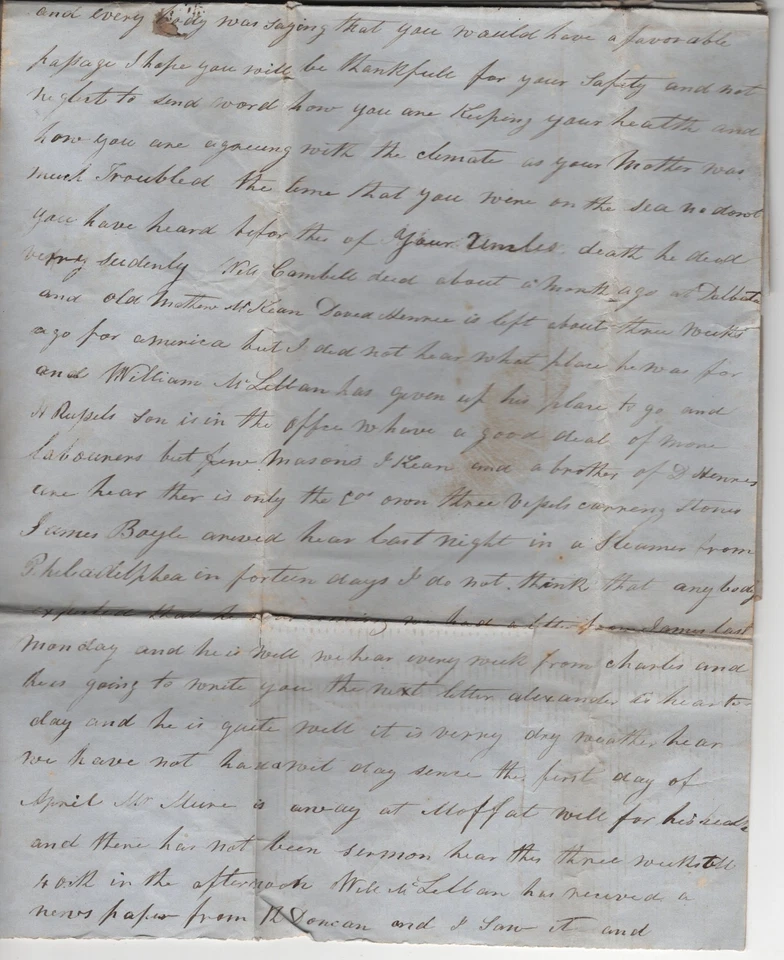 and every body was saying that you would have a favorable
passage I hope you will be thankfull for your safty and not
neglect to send word how you are Keeping your health and
how you are agreeing with the climate as your Mother was
much Troubled the time that you were on the sea no dout
you have heard befor this of Your Unkles death he deed
verry sudenly Will Cambell deed about a month ago at Dalbate
and old Mothew McKean David Hennee is left about three weeks
ago for america but I did not hear what place he was for
and William McLellan has given up his place to go and
Rupels son is in the offce w have a good deal of more
labourers but feue masons J Kean and a brother of D Hennes
are hear ther is only the Cos own three Vepels carreng stones
James Boyle areved hear last night in a Steamer from
Philadelphea in forteen days I do not think that any body
expected that he was coming we had a letter from James last
monday and he is well we hear every week from charles and
he is going to write you the next letter alexander is hear to
day and he is quite well it is verry dry weather hear
we have not had a wet day sense the first day of
April Mr Mure is away at Moffat well for his
and there has not been sermon hear this three weeks
in the afternoon Will McLellan has receved a
news paper from R Doncan and I saw it and